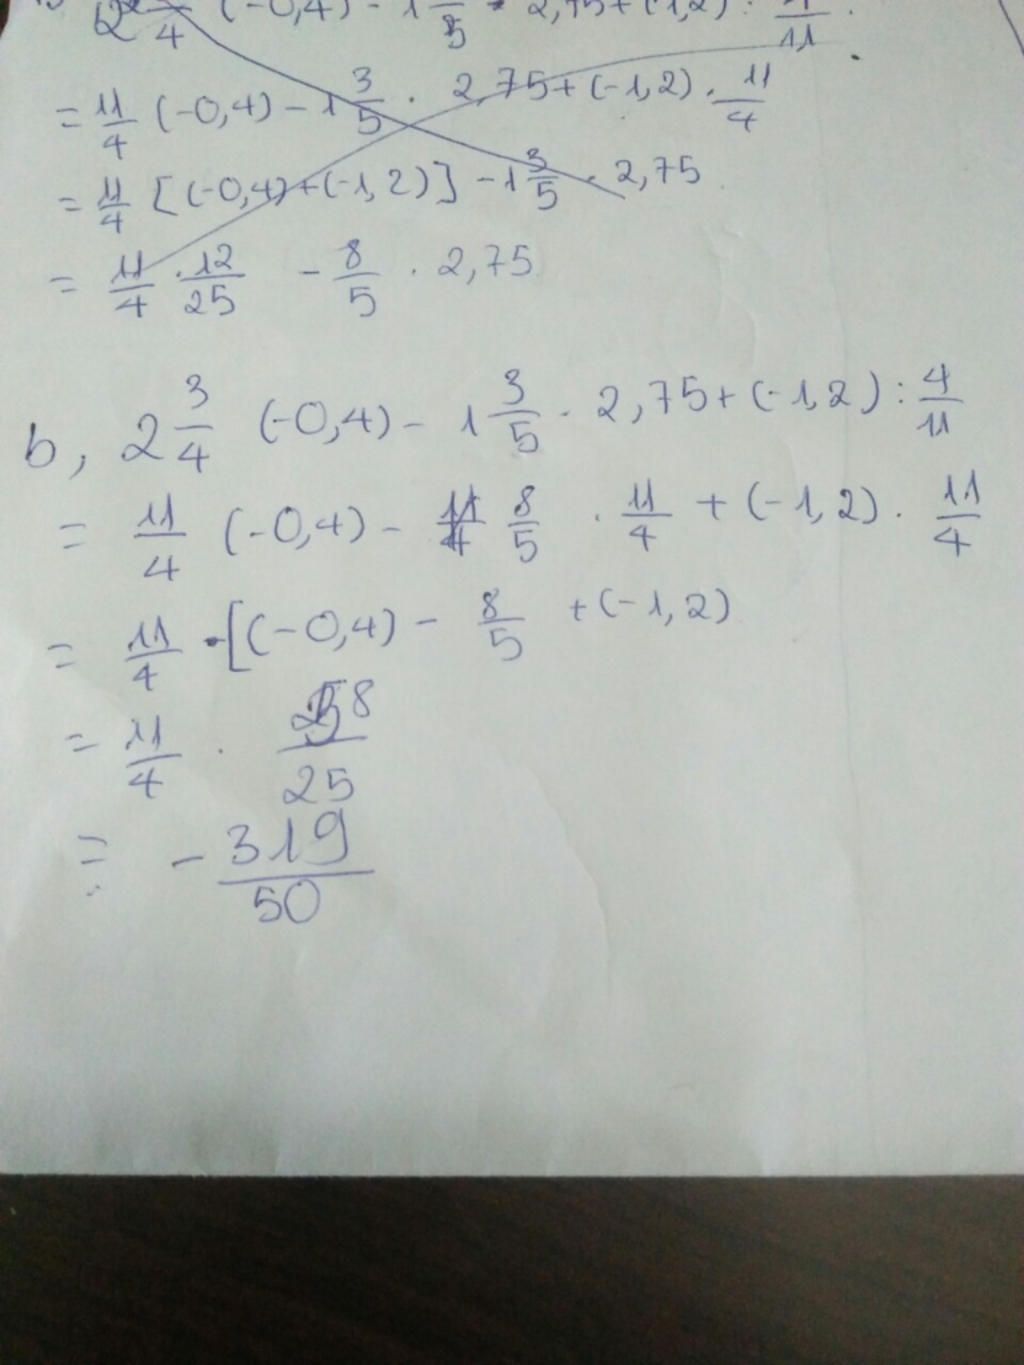 2 4 (-0,4) - 1 5 · 2,75+(-1,2) : 4/11
= 11/4 (-0,4) - 1 3/5 · 2,75+(-1,2) · 11/4
= 11/4 [(-0,4)+(-1,2)] - 1 3/5 · 2,75
= 11/4 · 12/25 - 8/5 · 2,75
b, 2 3/4 (-0,4) - 1 3/5 · 2,75+(-1,2) : 4/11
= 11/4 (-0,4) - 8/5 · 11/4 + (-1,2) · 11/4
= 11/4 · [(-0,4) - 8/5 + (-1,2)
= 11/4 · 58/25
= - 319/50